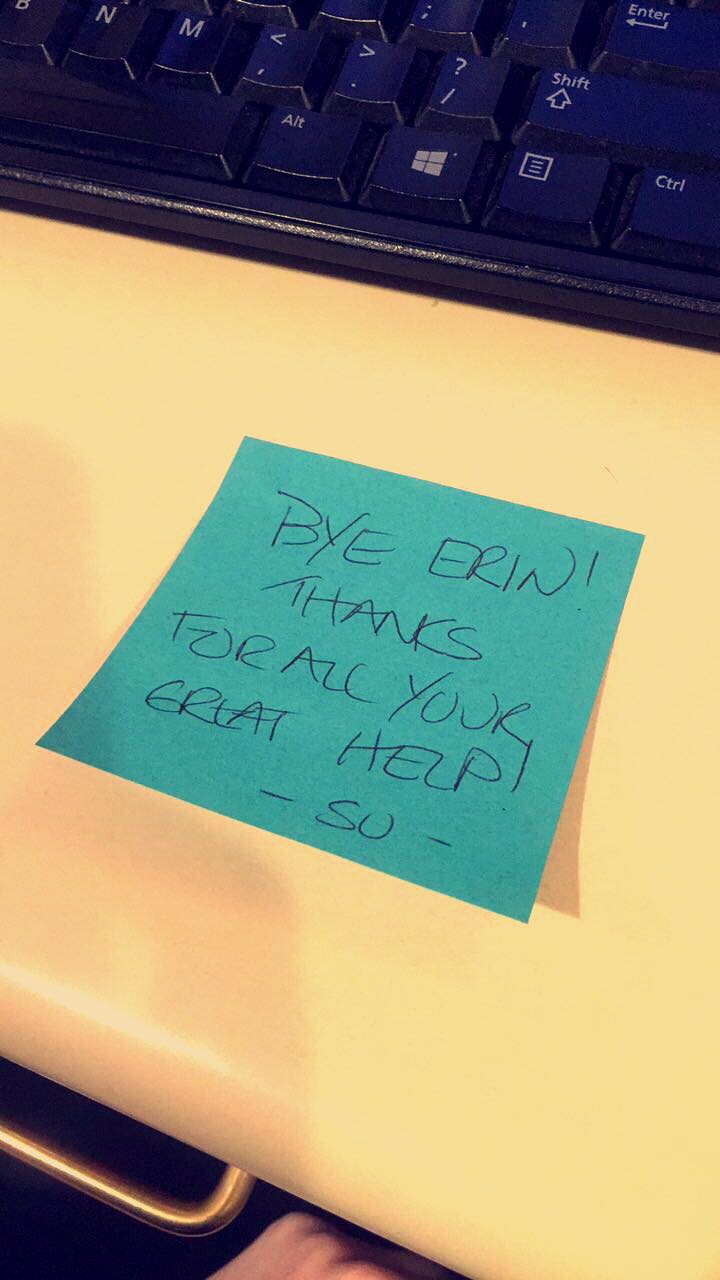 B N M < , > . ? / ; , Enter
Shift
Alt Ctrl
BYE ERIN!
THANKS
FOR ALL YOUR
GREAT HELP!
- SU -